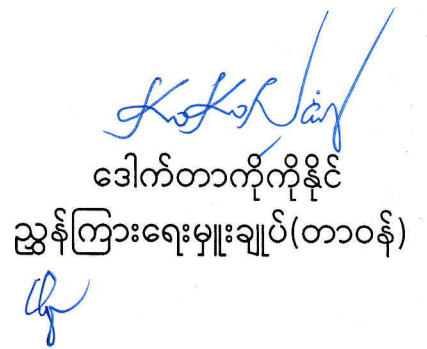 KoKoNaing
ဒေါက်တာကိုကိုနိုင်
ညွှန်ကြားရေးမှူးချုပ်(တာဝန်)